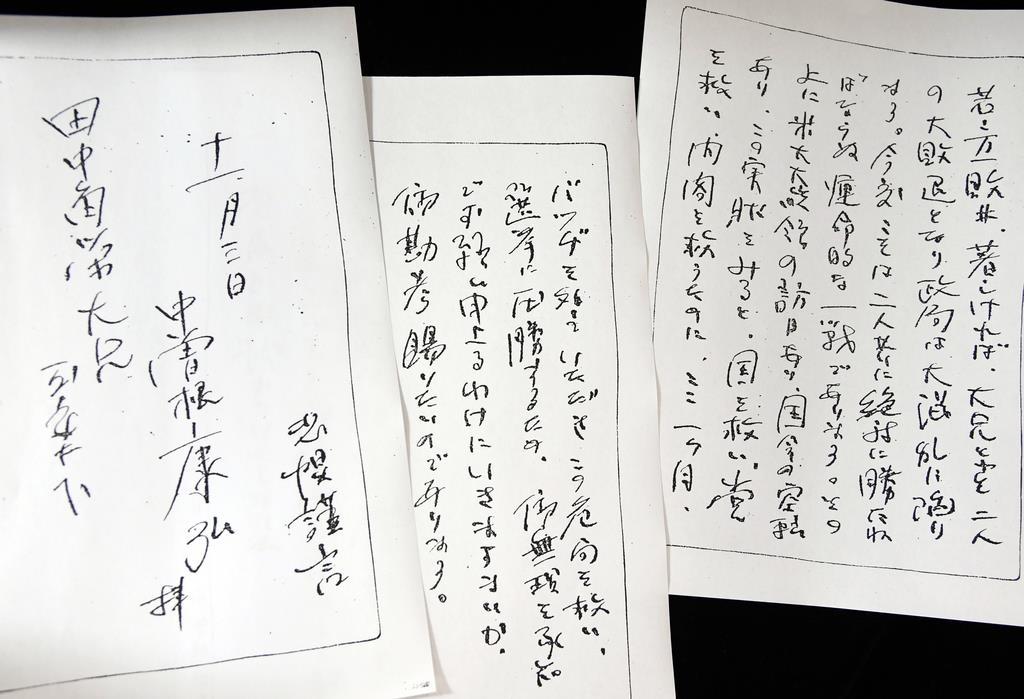 若し万一敗北、若しければ、大兄と小生と二人
の大敗退となり政局は大混乱に陥り
ます。今度こそは二人共に絶対に勝たね
ばならぬ運命的な一戦であります。その
上に米大統領の訪日あり国会の空転
あり、この実状をみると、国を救い、党
を救い、内閣を救うために、二、三ヶ月、
バッヂを外していただき この危局を救い、
選挙に圧勝するため、御無理を承知
でお願い申上るわけにいきますまいか。
御勘考賜りたいのであります。
恐惶謹言
十一月三日
中曽根康弘 拝
田中角栄大兄